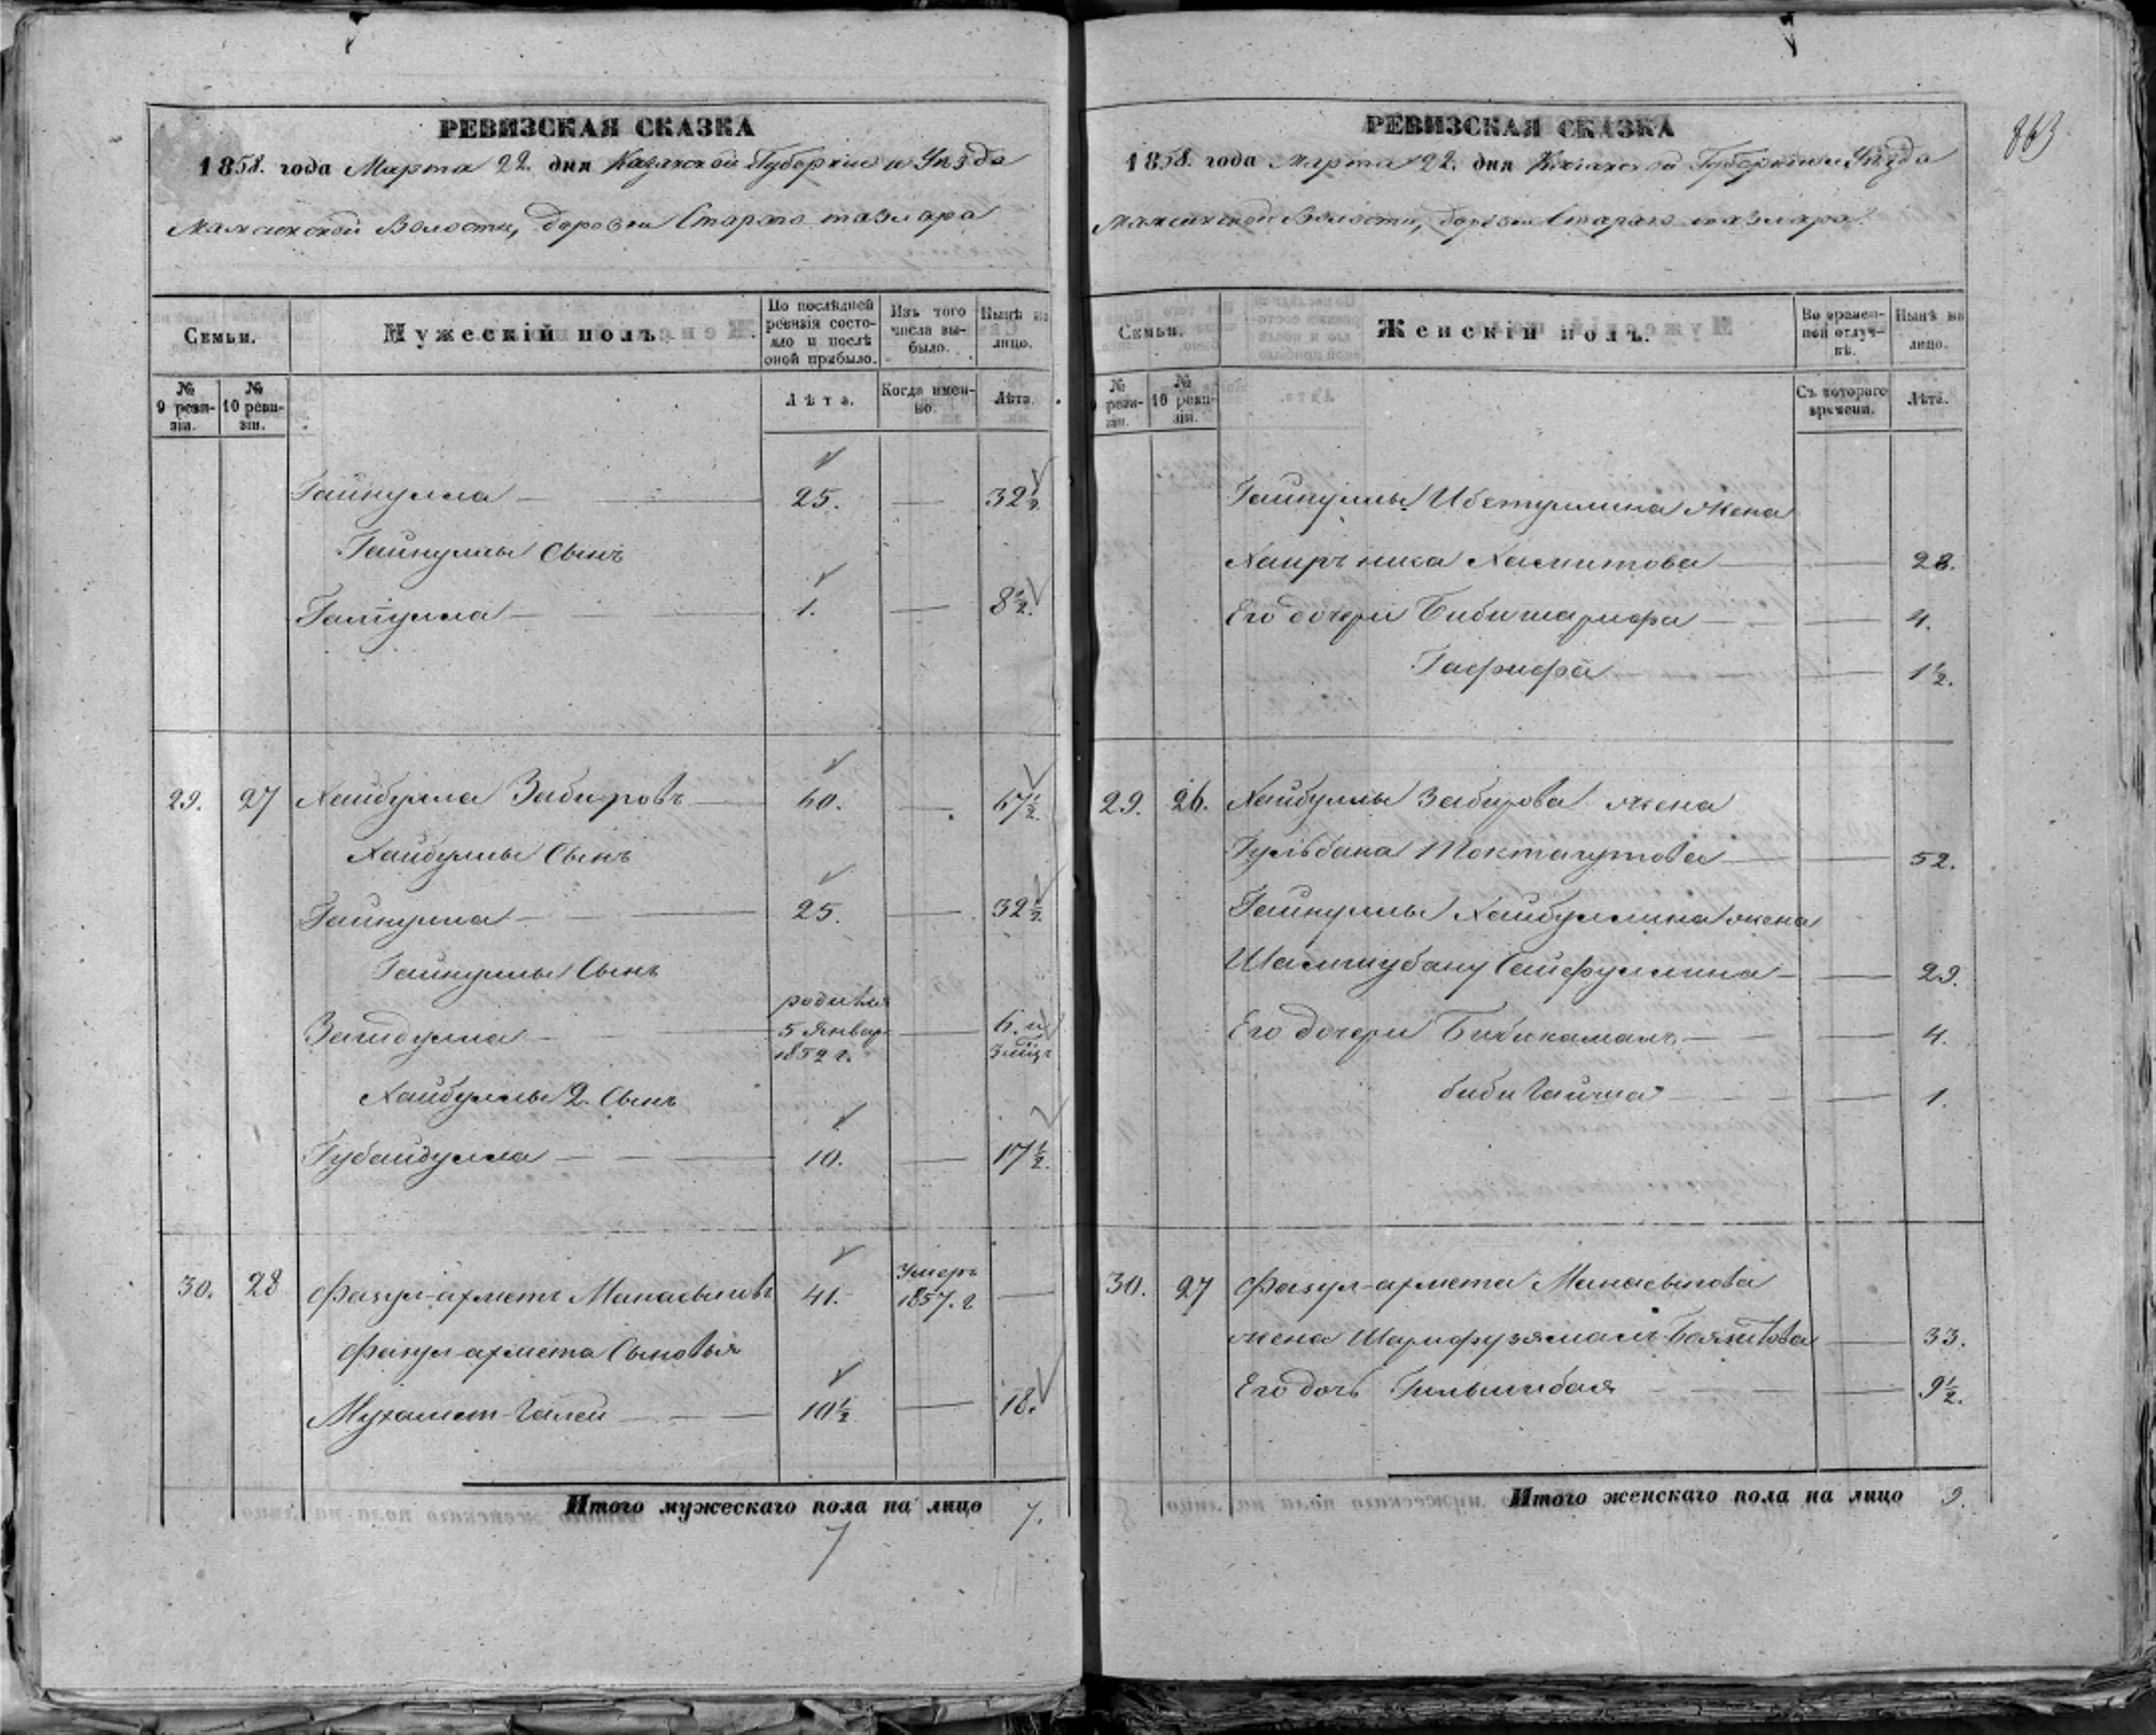 РЕВИЗСКАЯ СКАЗКА
1858. года Марта 22. дня Казанской Губернии и Уѣзда
Мамсинской Волости, деревни Стараго тазлара
Семьи.
Мужескій полъ.
По послѣдней ревизіи состояло и послѣ оной прибыло.
Изъ того числа выбыло.
Нынѣ на лицо.
№ 9 ревизіи.
№ 10 ревизіи.
Лѣта.
Когда именно.
Лѣта.
Гайнулла 25. 32 1/2
Гайнуллы Сынъ
Галіулла 1. 8 1/2.
29. 27 Хайбулла Забировъ 60. 67 1/2.
Хайбуллы Сынъ
Гайнулла 25. 32 1/2.
Гайнуллы Сынъ
Загидулла родился 5 Январ 1852 г. 6. и 3 мѣц
Хайбуллы 2. Сынъ
Губайдулла 10. 17 1/2.
30. 28 Фазул-ахметъ 41. Умеръ 1857. г
Фазул-ахмета Сыновья
Мухамет-Галей 10 1/2 18.
Итого мужескаго пола на лицо 7.
7
863
РЕВИЗСКАЯ СКАЗКА
1858. года Марта 22. дня Казанской Губернии и Уѣзда
Мамсинской Волости, деревни Стараго тазлара
Семьи.
Женскій полъ.
Во временной отлучкѣ.
Нынѣ на лицо.
№ 9 ревизіи.
№ 10 ревизіи.
Съ котораго времени.
Лѣта.
Гайнуллы жена
Хамитова 28.
Его дочери Бибишарифа 4.
Гафифа 1 1/2.
29. 26. Хайбуллы Забирова жена
Гульбана 52.
Гайнуллы Хайбуллина жена
Шамшубану Сайфуллина 29.
Его дочери Бибикамалъ 4.
биби Гайша 1.
30. 27 Фазул-ахмета
жена Шарифузямалъ 33.
Его дочь 9 1/2.
Итого женскаго пола на лицо 9.